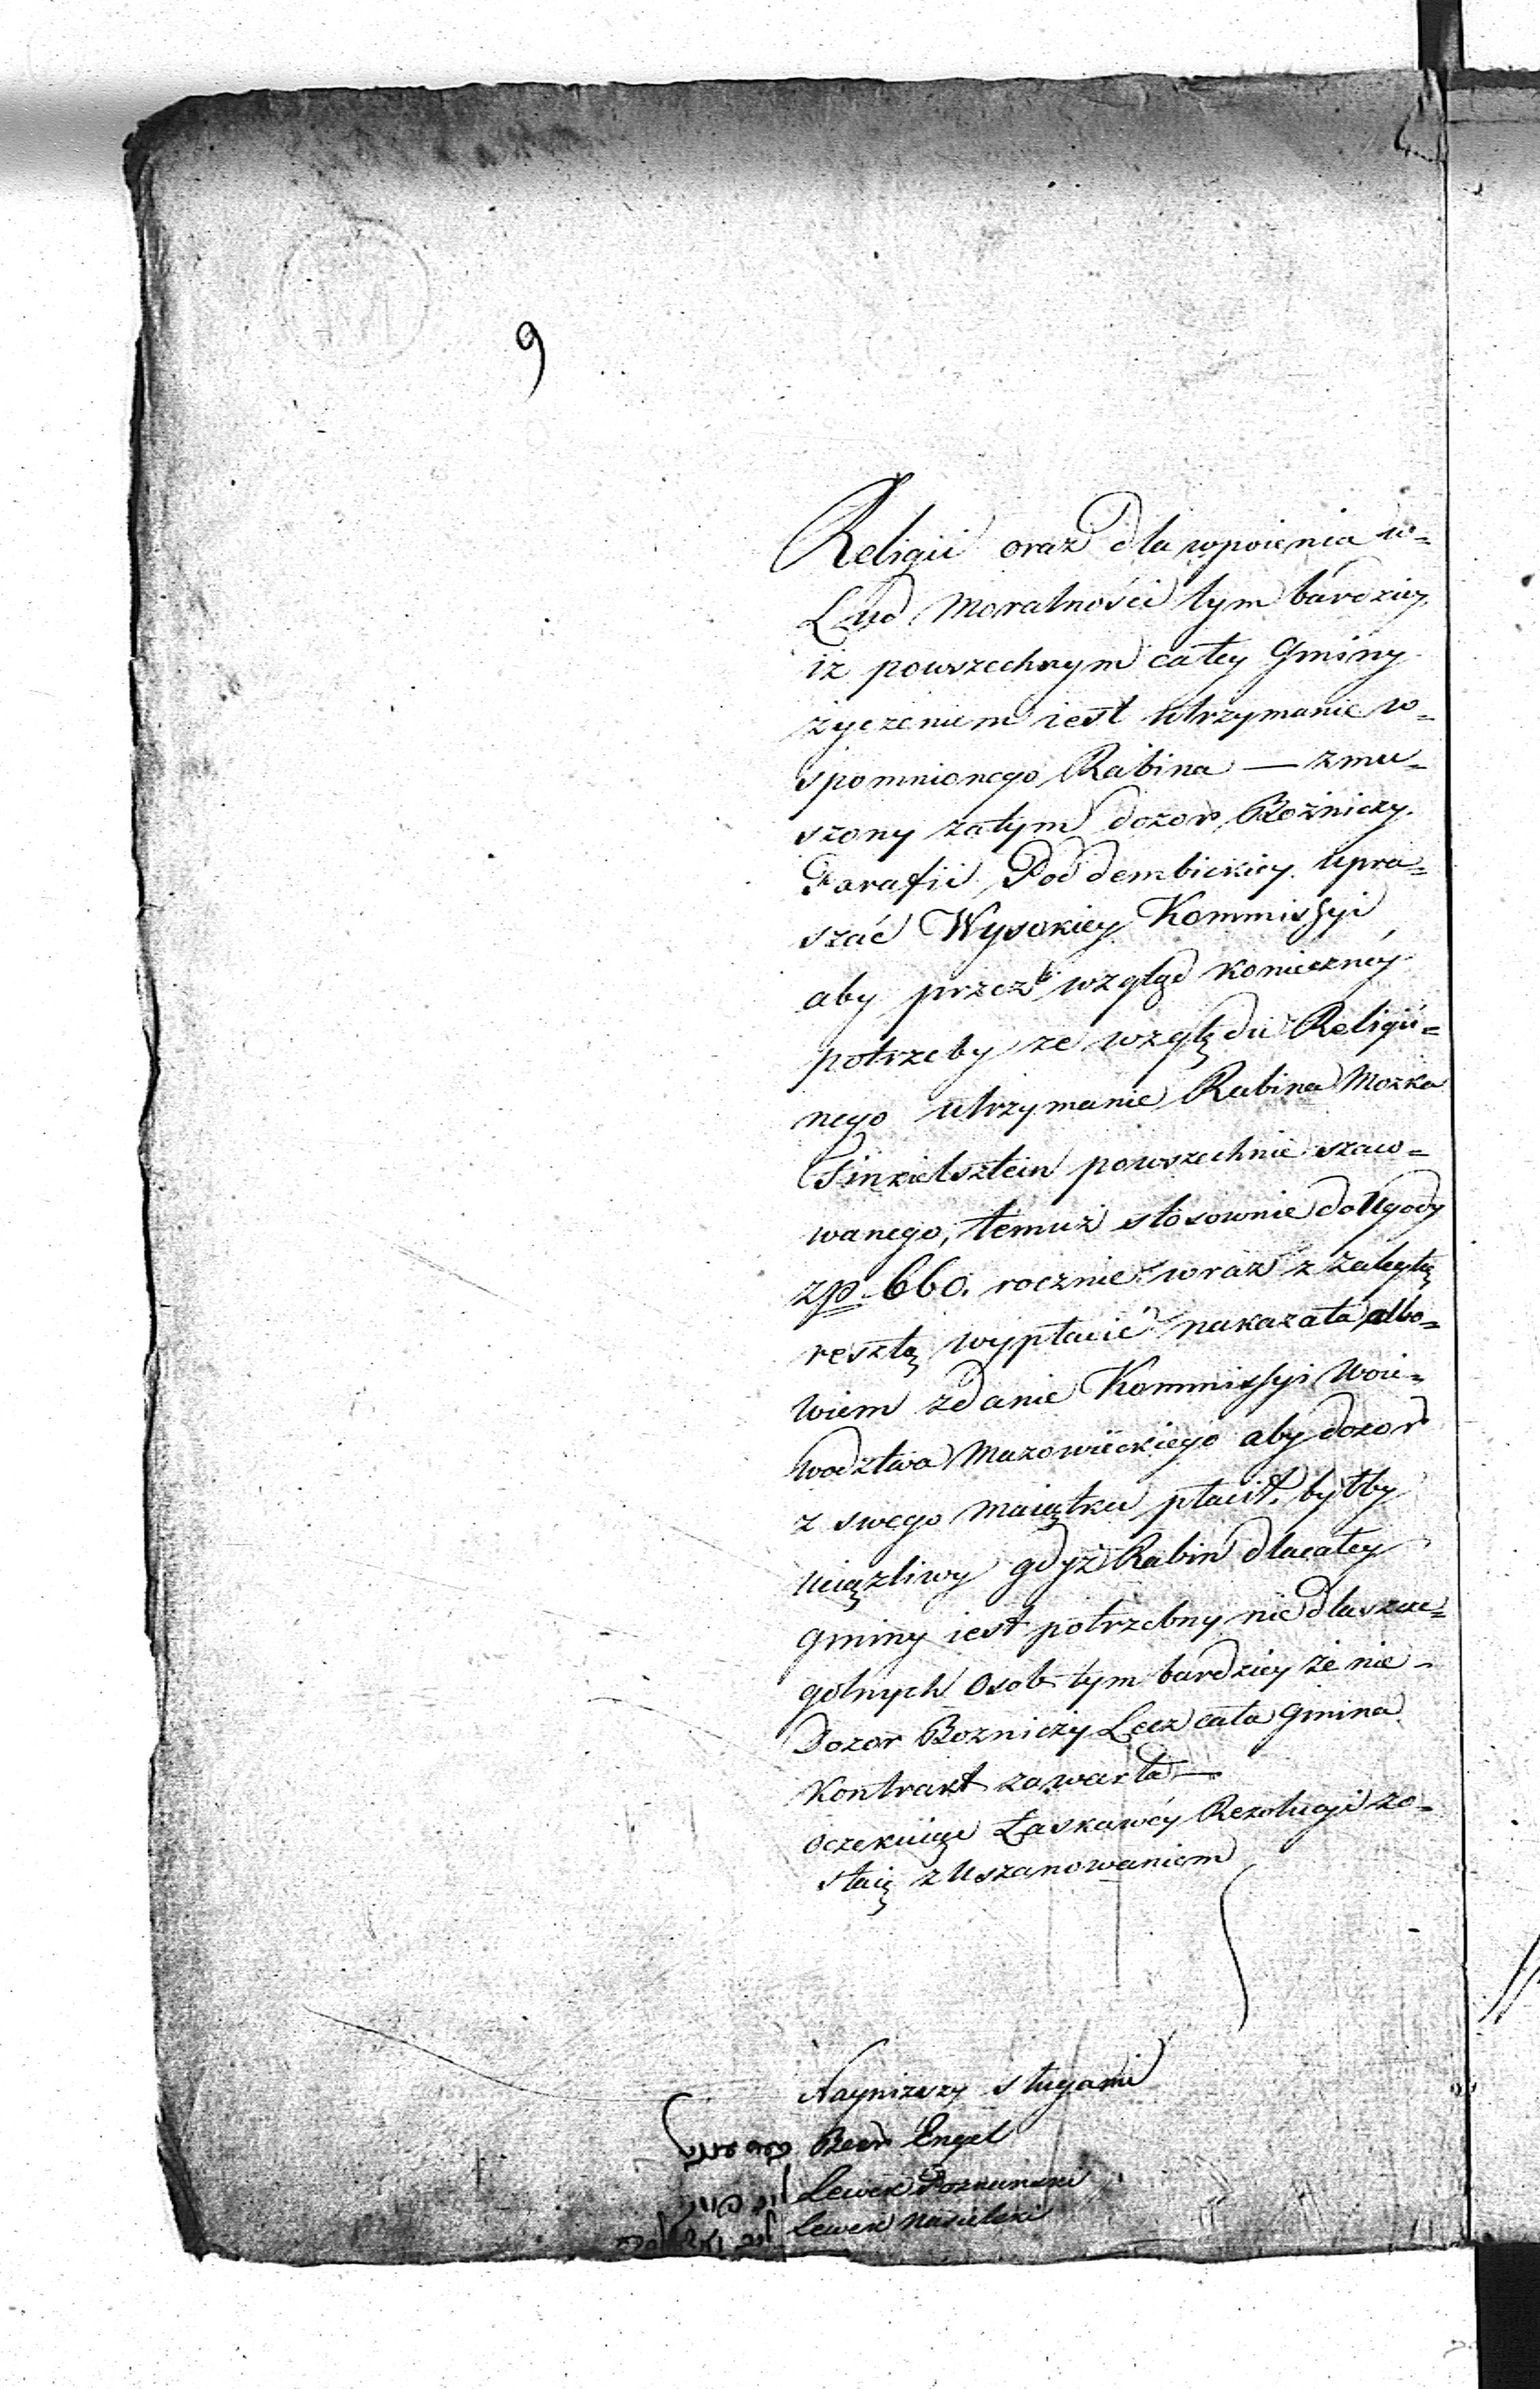 9
Religii oraz dla wpoienia w=
Lud Moralności tym bardziey,
iż powszechnym całey Gminy
życzeniem iest utrzymanie w=
spomnionego Rabina — zmu=
szony zatym dozor Bożniczy
Parafii Poddembickiey upra=
szać Wysokiey Kommissyi
aby przez wzgląd konieczney
potrzeby ze względu Religii=
nego utrzymanie Rabina Moszka
Finkielsztein powszechnie szaw=
wanego, temuż stosownie do Ugody
zp 660. rocznie wraz z zaległą
resztą wypłacić nakazała, albo=
wiem zdanie Kommissyi Woie=
wodztwa Mazowieckiego aby dozor
z swego Maiątku płacił, byłby
uciążliwy gdyż Rabin dla całey
gminy iest potrzebny nie dla szcze=
golnych Osob tym bardziey że nie=
Dozor Bozniczy Lecz cała Gmina
Kontrakt zawarła —
oczekuiąc Łaskawéy Rezolucyi zo=
staią z Uszanowaniem
Nayniższy sługami
Beer Engel
Lewek Poznanski
Lewek Nasielski